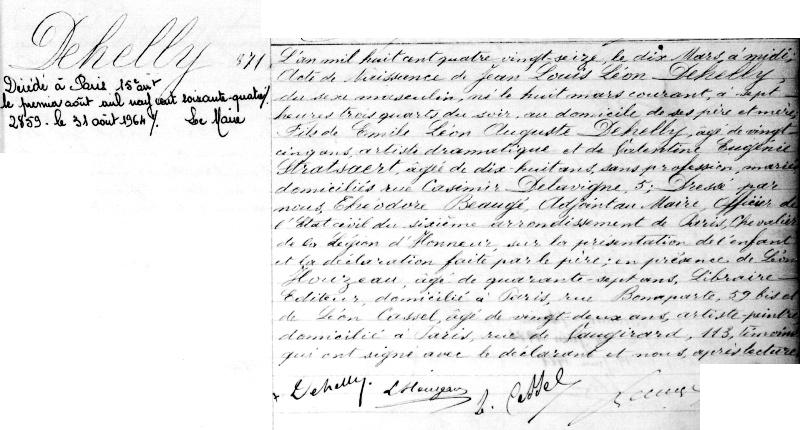 Dehelly 871
Décédé à Paris 15e arrt
le premier août mil neuf cent soixante-quatre/.
2859. le 31 août 1964/. Le Maire
L'an mil huit cent quatre-vingt-seize, le dix Mars, à midi,
Acte de Naissance de Jean Louis Léon Dehelly,
du sexe masculin, né le huit mars courant, à sept
heures trois quarts du soir, au domicile de ses père et mère,
Fils de Emile Léon Auguste Dehelly, âgé de vingt-
cinq ans, artiste dramatique et de Valentine Eugénie
Stratsaert, âgée de dix-huit ans, sans profession, mariés
domiciliés rue Casimir Delavigne, 5; Dressé par
nous, Théodore Beaugé, Adjoint au Maire, Officier de
l'Etat civil du sixième arrondissement de Paris, Chevalier
de la Légion d'Honneur, sur la présentation de l'enfant
et la déclaration faite par le père; en présence de Léon
Houzeau, âgé de quarante-sept ans, Libraire-
Editeur, domicilié à Paris, rue Bonaparte, 59 bis et
de Léon Cassel, âgé de vingt-deux ans, artiste-peintre
domicilié à Paris, rue de Vaugirard, 113, témoins
qui ont signé avec le déclarant et nous, après lecture
+ Dehelly. L Houzeau L. Cassel